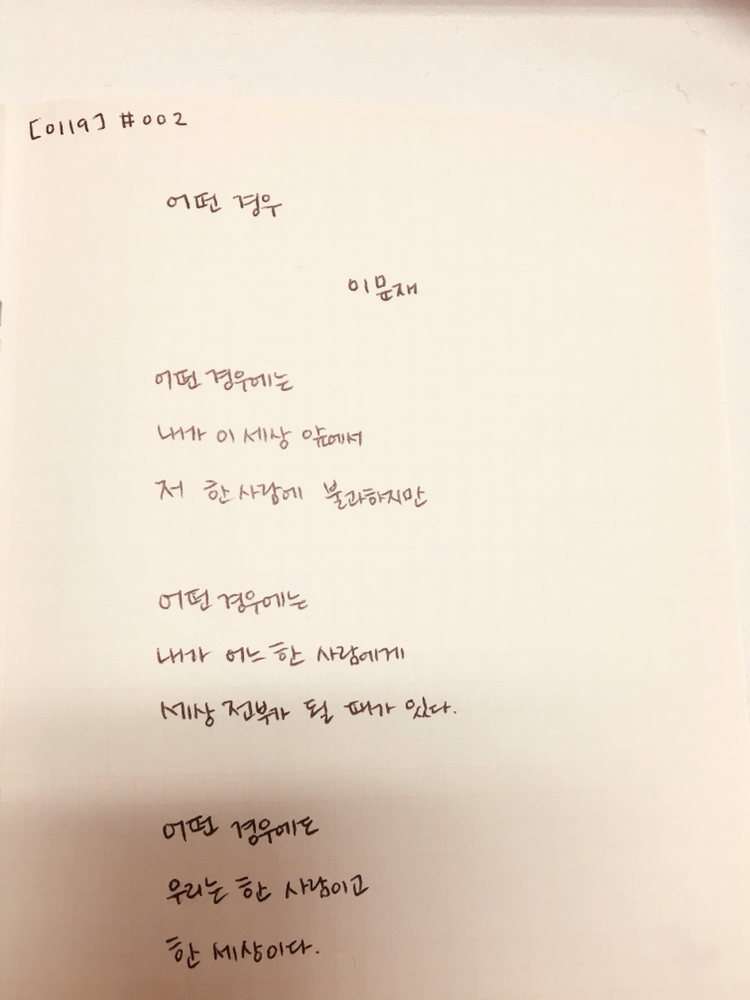 [0119] #002
어떤 경우
이문재
어떤 경우에는
내가 이 세상 앞에서
저 한 사람에 불과하지만
어떤 경우에는
내가 어느 한 사람에게
세상 전부가 될 때가 있다.
어떤 경우에도
우리는 한 사람이고
한 세상이다.